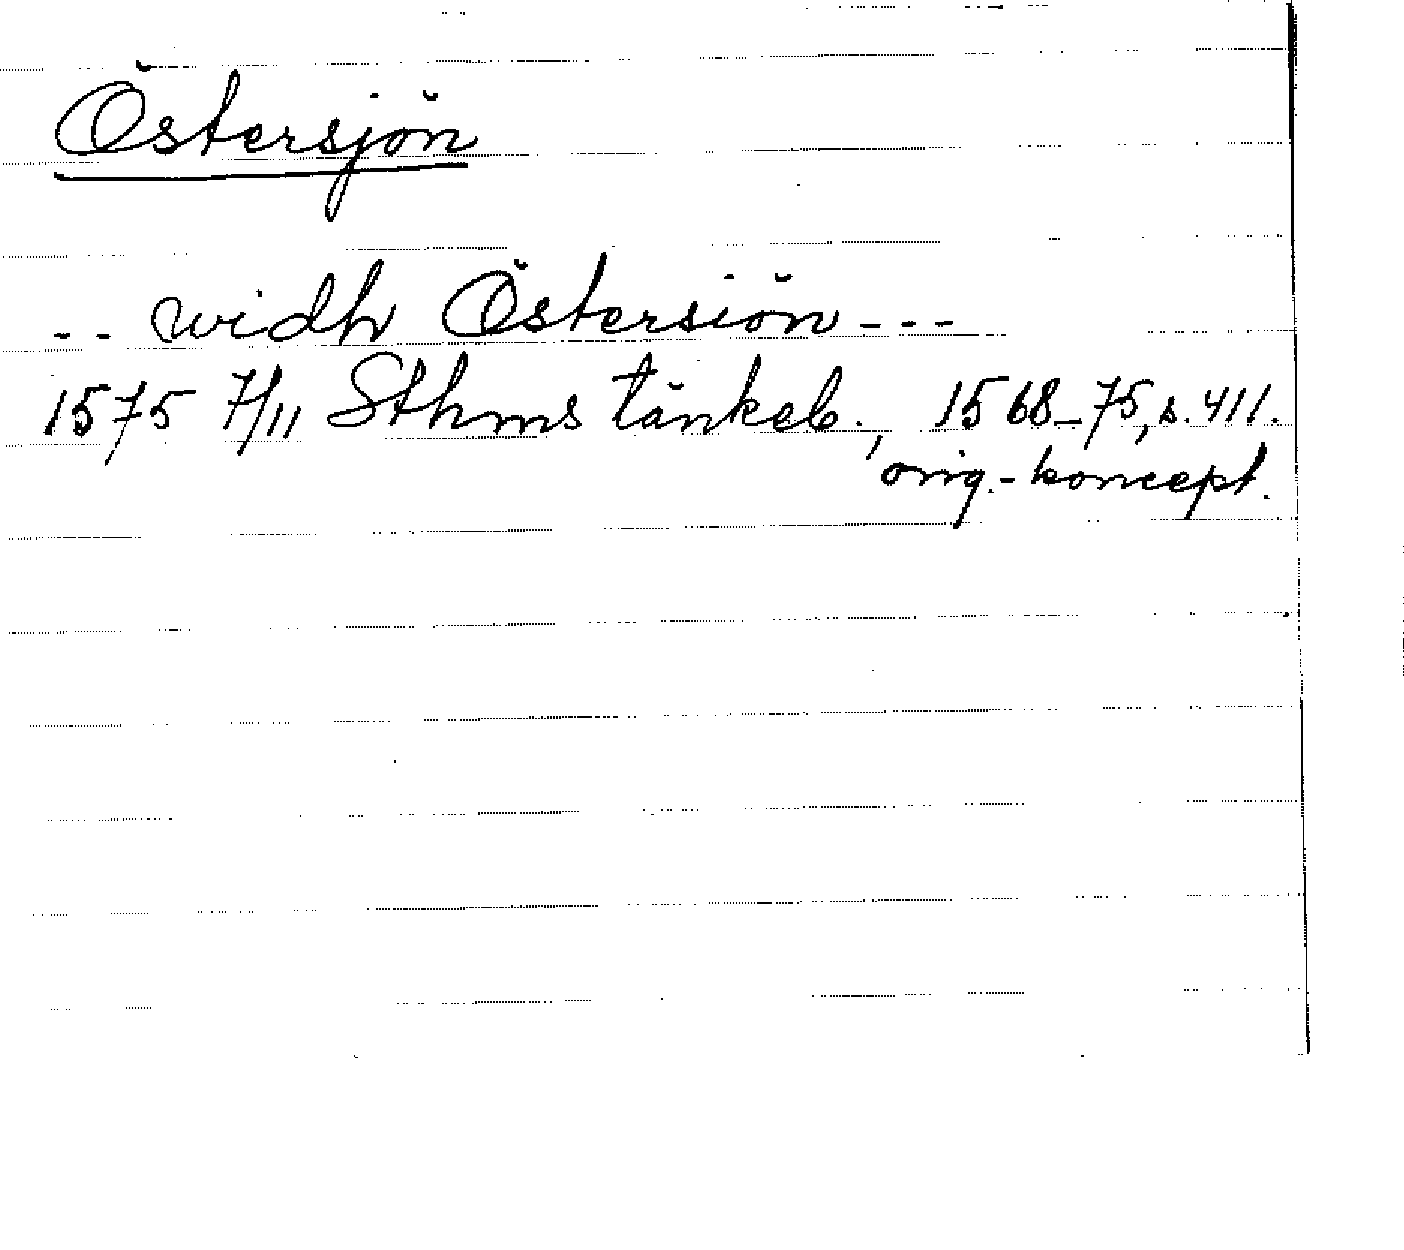 Östersjön
-- widh Östersiön ---
1575 7/11 Sthms tänkeb., 1568-75, s. 411.
orig.-koncept.